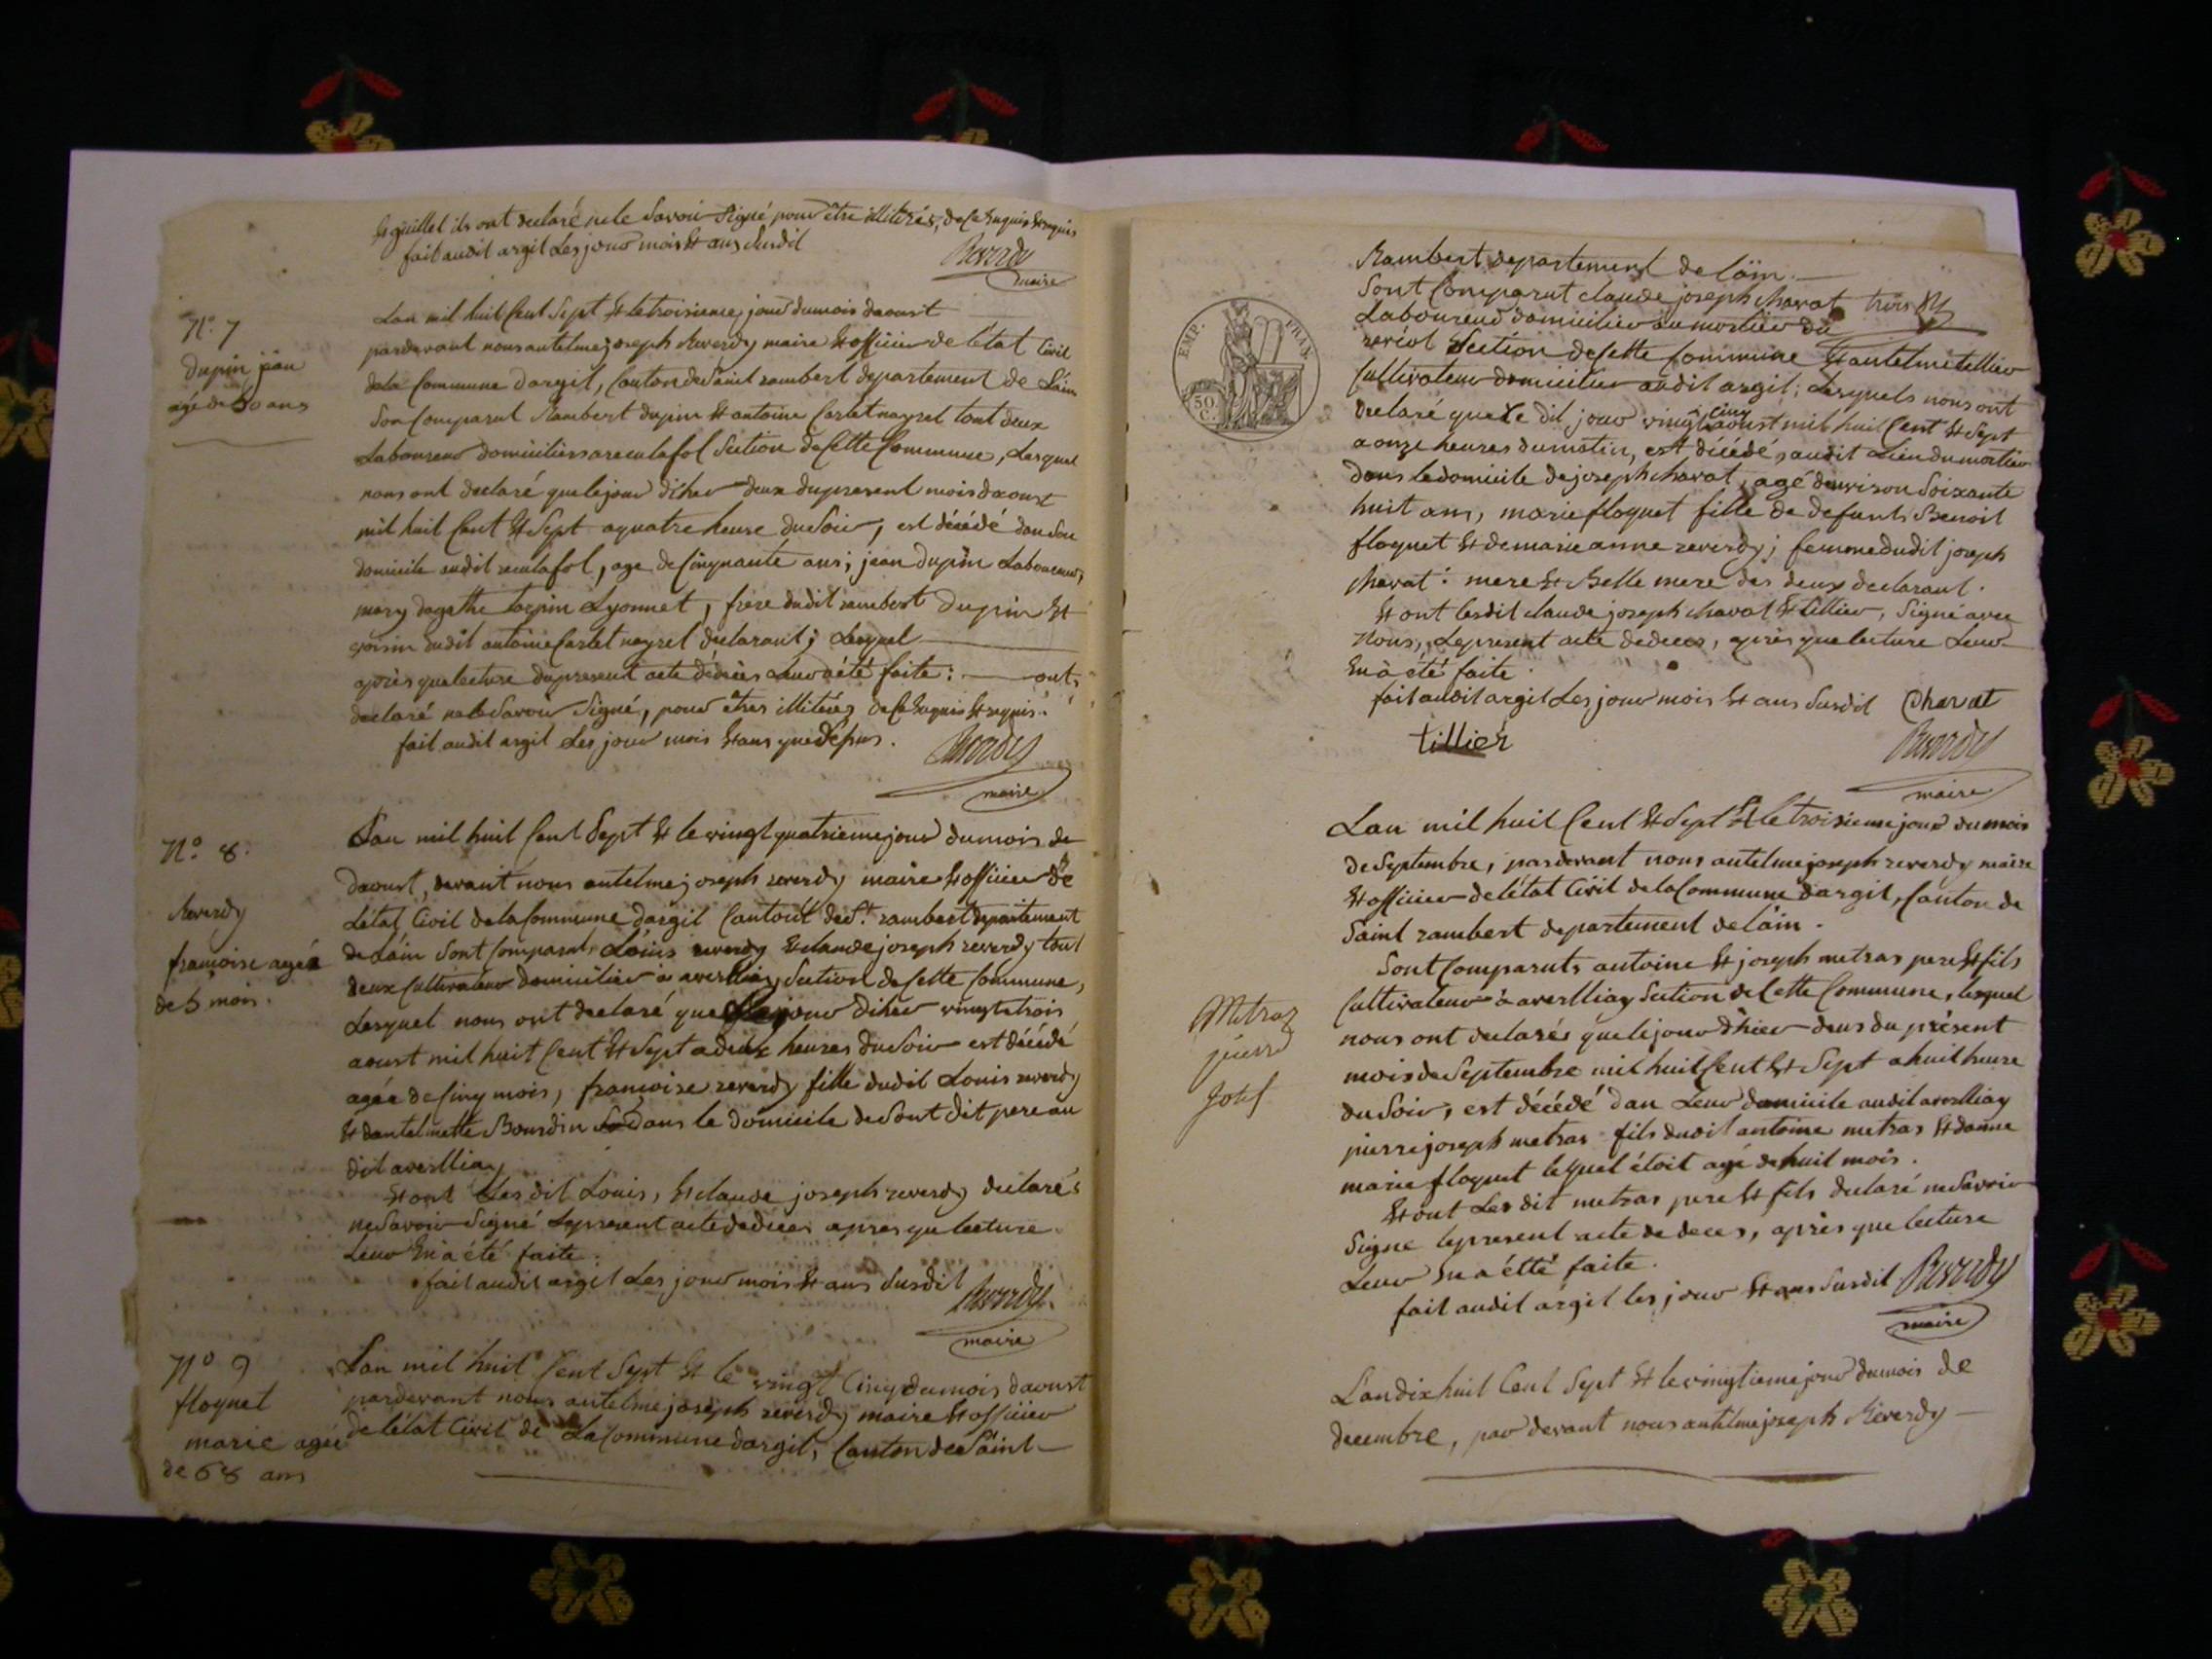 Et guillet ils ont declaré ne le Savoir Signé pour être illiterés, de ce Enquis Et requis
fait audit argil Les jour mois Et ans Susdit
Reverdy
maire
N.° 7
dupin jean
agé de 50 ans
Lan mil huit Cent Sept Et le troisieme jour du mois daoust
pardevant nous antelme joseph Reverdy maire Et officier de l'état Civil
de la Commune dargil, Canton de Saint rambert departement de Lain
Son Comparut Rambert dupin Et antoine Carlet nayret tout deux
Laboureur domicilier a reculafol Section de Cette Commune, Lesquel
nous ont declaré que le jour d'hier deux du present mois daoust
mil huit Cent Et Sept a quatre heure du Soir, est décédé dan Son
domicile audit reculafol, age de Cinquante ans; jean dupin Laboureur,
mary dagathe Lyonnet, frere dudit rambert dupin Et
voisin dudit antoine Carlet nayret declarant; Lesquel
après que lecture du present acte dédécès Leur a été faite: ont,
declaré ne le Savoir Signé, pour êtres illiterés de Ce Enquis Et requis.
fait audit argil Les jour mois Et ans que depus.
Reverdy
maire
N.° 8.
Reverdy
francoise agée
de 5 mois.
Lan mil huit Cent Sept Et le vingt quatrieme jour du mois de
Daoust, devant nous antelme joseph reverdy maire Et officier de
L'état Civil de la Commune dargil Canton de St. rambert departement
de Lain Sont Comparut Louis reverdy Et claude joseph reverdy tout
deux Cultivateur domicilier a averlliay Section de Cette Commune,
Lesquel nous ont declaré que le jour d'hier vingt trois
aoust mil huit Cent Et Sept a deux heures du Soir est décédé
agée de Cinq mois, francoise reverdy fille dudit Louis reverdy
Et dantelmette Bourdin dans le domicile de Sont dit pere au
dit averlliay
Et ont Les dit Louis, Et claude joseph reverdy declarés
ne Savoir Signé Le present acte dedécès apres que lecture
Leur En a été faite.
fait audit argil Les jour mois Et ans Susdit
Reverdy
maire
N° 9
floquet
marie agée
de 68 ans
Lan mil huit Cent Sept Et le vingt Cinq du mois daoust
pardevant nous antelme joseph reverdy maire Et officier
de l'état Civil de La Commune dargil, Canton de Saint
Rambert departement de Lain.
Sont Comparut claude joseph charat
trois
Laboureur domicilier au mortier du
reriol Section de Cette Commune Et antelme tillier
Cultivateur domicilier audit argil; Lesquels nous ont
declaré que Le dit jour vingt cinq aoust mil huit Cent Et Sept
a onze heures du matin, est décédé, audit Lieu du mortier
dans le domicile de joseph charat, agé denviron Soixante
huit ans, marie floquet fille de defunts Benoit
floquet Et de marie anne reverdy; femme dudit joseph
charat: mere Et Belle mere des deux declarant.
Et ont lesdit claude joseph charat Et tillier, Signé avec
Nous, Le present acte dedeces, après que lecture Leur
En à été faite.
fait audit argil Les jour mois Et ans Susdit
Charat
tillier
Reverdy
maire
EMP. FRAN.
50 C.
Lan mil huit Cent Et Sept Et le troisieme jour du mois
de Septembre, pardevant nous antelme joseph reverdy maire
Et officier de l'état Civil de la Commune dargil, Canton de
Saint rambert departement de Lain.
Metraz
pierre
Josef
Sont Comparuts antoine Et joseph metras pere Et fils
Cultivateur à averlliay Section de Cette Commune, lesquel
nous ont declarés que le jour d'hier deus du présent
mois de Septembre mil huit Cent Et Sept a huit heure
du Soir, est décédé dan Leur domicile audit averlliay
pierre joseph metras fils dudit antoine metras Et danne
marie floquet lequel étoit agé de huit mois.
Et ont Les dit metras pere Et fils declaré ne Savoir
Signe le present acte de deces, après que lecture
Leur En a étté faite.
fait audit argil les jour Et ans Susdit
Reverdy
maire
Lan dix huit Cent Sept Et le vingtieme jour du mois de
decembre, par devant nous antelme joseph Reverdy